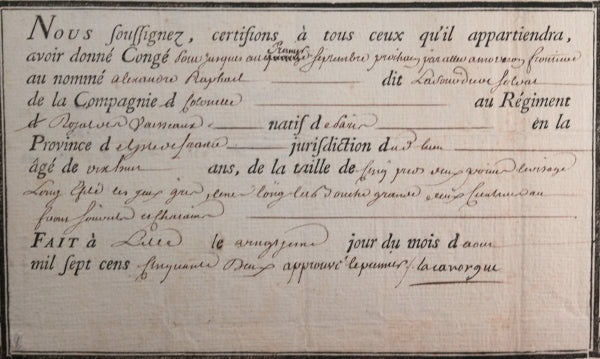 NOUS soussignez, certifions à tous ceux qu'il appartiendra,
premier
avoir donné Congé pour jusques au septembre prochain pour aller
au nommé alexandre Raphael dit soldat
de la Compagnie d Colonelle au Régiment
d Royal des Vaisseaux natif de paris en la
Province d isle de france jurisdiction du d lieu
âgé de dix huit ans, de la taille de cinq pieds deux pouces le visage
Long les yeux gris, le nez long la bouche grande
et chatain
FAIT à Lille le jour du mois d aout
mil sept cens cinquante deux approuvé le premier / lacavorque